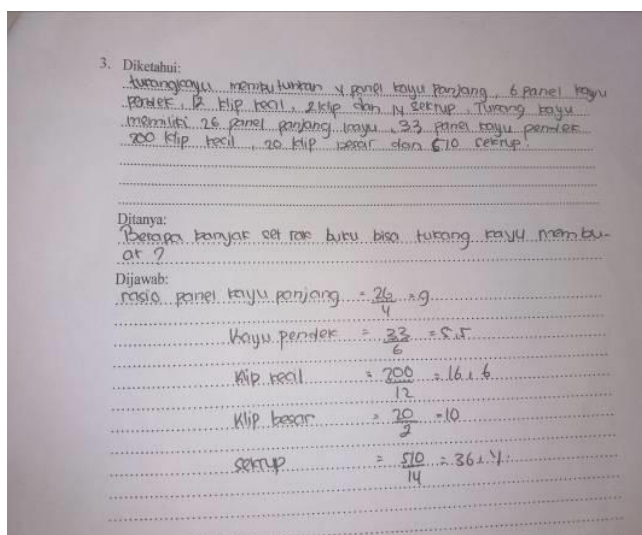 3. Diketahui:
tukangkayu membutuhkan 4 panel kayu panjang, 6 panel kayu
pendek, 12 klip kecil, 2klip dan 14 sekrup. Tukang kayu
memiliki 26 panel panjang kayu, 33 panel kayu pendek
200 klip kecil, 20 klip besar dan 510 sekrup.
Ditanya:
Berapa banyak set rak buku bisa tukang kayu membu-
at ?
Dijawab:
rasio panel kayu panjang = 26/4 = 9
kayu pendek = 33/6 = 5.5
klip kecil = 200/12 = 16,6
klip besar = 20/2 = 10
sekrup = 510/14 = 36,4